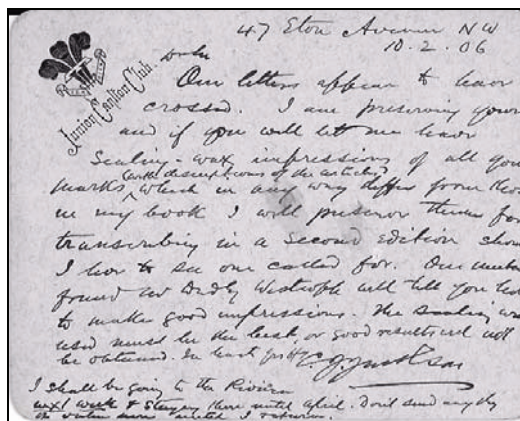 47 Eton Avenue NW
10.2.06
Junior Carlton Club
Our letters appear to have
crossed. I am preserving yours
and if you will let me have
Sealing-wax impressions of all your
(with descriptions of the articles)
marks which in any way differ from those
in my book I will preserve them for
transcribing in a Second Edition should
I live to see one called for. Our mutual
friend Mr Dudly Westropp will tell you how
to make good impressions. The Sealing wax
used must be the best, or good results will not
be obtained. In haste
I shall be going to the Riviera
next week & Staying there until April. Don't send any thing
I return.